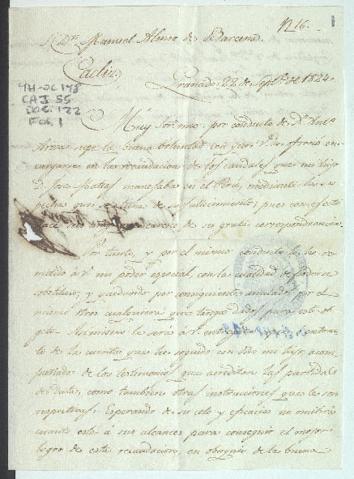 Nº 16.
1
Sr. Dn. Manuel Alonso de Barcena.
Cadiz.
TH-OC 178
CAJ. 55
DOC. 122
FOL. 1
Granada 22 de Septe. de 1824.
Muy Sor. mio: por conducto de Dn. Anto.
la buena voluntad con que V. se ofrece en
en la recaudacion de los caudales que mi hijo
D. José Matias manejaba en el Perú, mediante las
de su fallecimiento; pues con efecto
de su grata correspondencia.
Por tanto, y por el mismo conducto le he re-
mitido á V. mi poder especial, con la cualidad de poderse
substituir; y quedando por consiguiente anulado por el
mismo otro cualesquiera que tenga dado para este ob-
geto. Asimismo le será á V. el extrac-
to de las cuentas que he seguido con dicho mi hijo, acom-
pañado de los testimonios que acreditan las partidas
de data, como tambien otras instrucciones que le son
respectivas. Esperando de su celo y eficacia no omitirá
cuanto esté á sus alcances para conseguir el mejor
logro de esta recaudacion, en obsequio de la buena